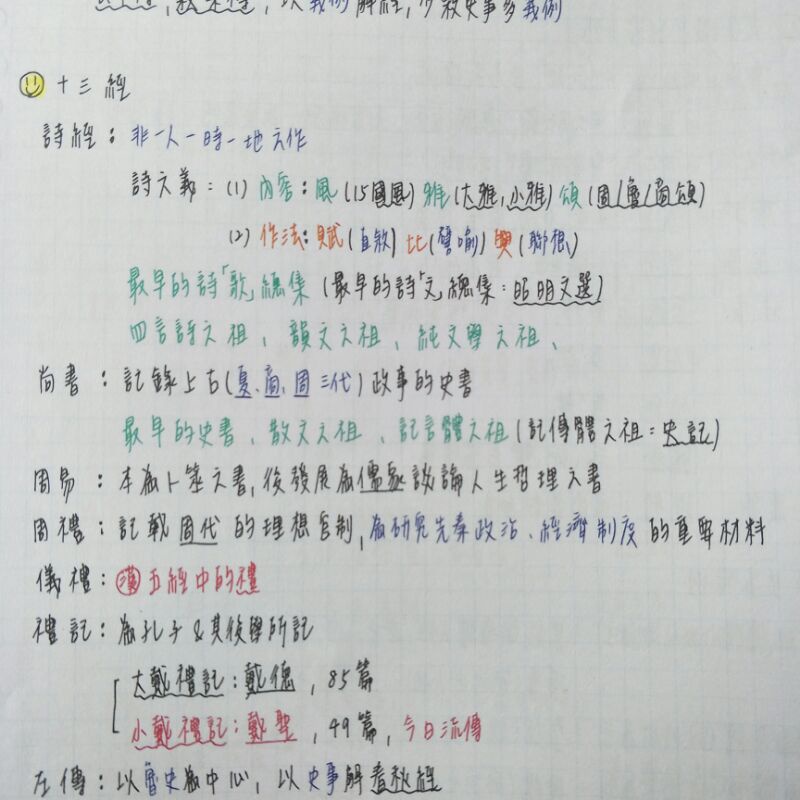 以義例解經，少敘史事多義例
十三經
詩經：非一人一時一地之作
詩之義：(1) 內容：風(15國風) 雅(大雅, 小雅) 頌(周/魯/商頌)
(2) 作法：賦(直敘) 比(譬喻) 興(聯想)
最早的詩「歌」總集 (最早的詩「文」總集：昭明文選)
四言詩之祖、韻文之祖、純文學之祖、
尚書：記錄上古(夏、商、周三代)政事的史書
最早的史書、散文之祖、記言體之祖(記傳體之祖：史記)
周易：本為卜筮之書, 後發展為儒家談論人生哲理之書
周禮：記載周代的理想官制, 為研究先秦政治、經濟制度的重要材料
儀禮：漢五經中的禮
禮記：為孔子&其後學所記
大戴禮記：戴德, 85篇
小戴禮記：戴聖, 49篇, 今日流傳
左傳：以魯史為中心, 以史事解春秋經